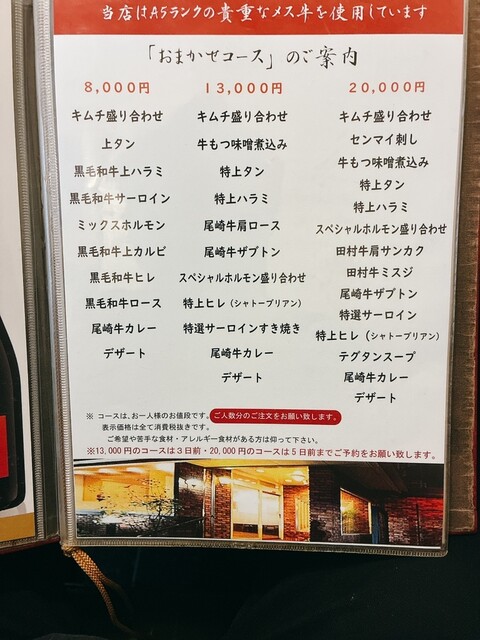 当店はA5ランクの貴重なメス牛を使用しています
「おまかせコース」のご案内
8,000円
キムチ盛り合わせ
上タン
黒毛和牛上ハラミ
黒毛和牛サーロイン
ミックスホルモン
黒毛和牛上カルビ
黒毛和牛ヒレ
黒毛和牛ロース
尾崎牛カレー
デザート
13,000円
キムチ盛り合わせ
牛もつ味噌煮込み
特上タン
特上ハラミ
尾崎牛肩ロース
尾崎牛ザブトン
スペシャルホルモン盛り合わせ
特上ヒレ(シャトーブリアン)
特選サーロインすき焼き
尾崎牛カレー
デザート
20,000円
キムチ盛り合わせ
センマイ刺し
牛もつ味噌煮込み
特上タン
特上ハラミ
スペシャルホルモン盛り合わせ
田村牛肩サンカク
田村牛ミスジ
尾崎牛ザブトン
特選サーロイン
特上ヒレ(シャトーブリアン)
テグタンスープ
尾崎牛カレー
デザート
※ コースは、お一人様のお値段です。ご人数分のご注文をお願い致します。
表示価格は全て消費税抜きです。
ご希望や苦手な食材・アレルギー食材がある方は仰って下さい。
※13,000円のコースは3日前・20,000円のコースは5日前までご予約をお願い致します。